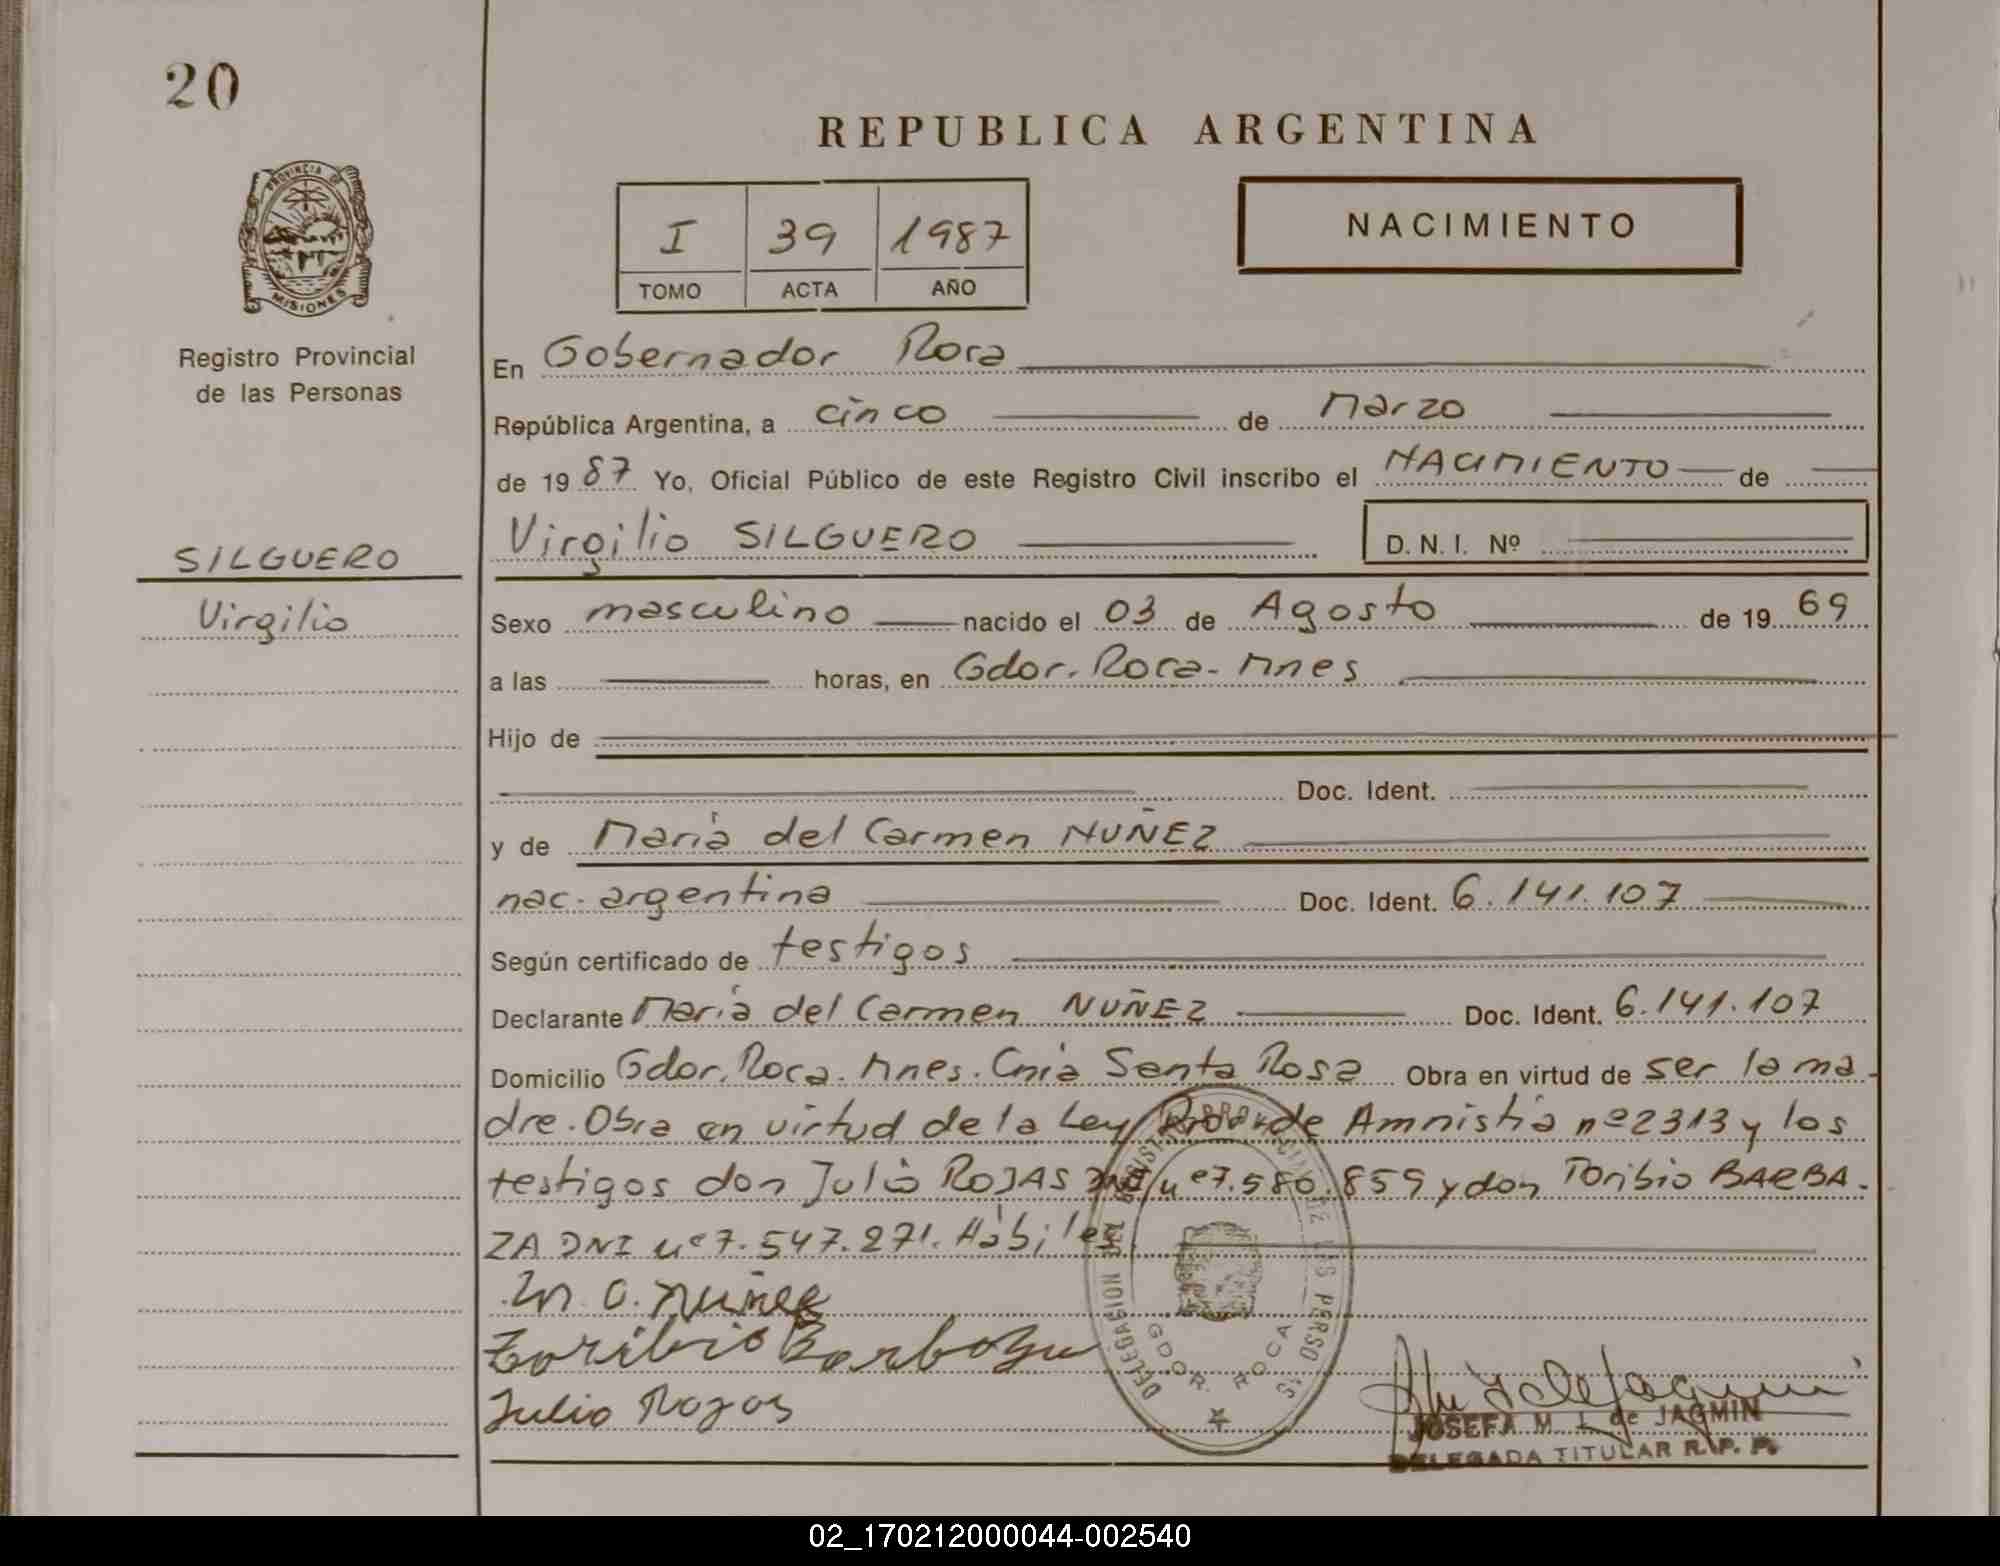 20
REPUBLICA ARGENTINA
PROVINCIA DE
MISIONES
I 39 1987
TOMO ACTA AÑO
NACIMIENTO
Registro Provincial
de las Personas
En Gobernador Roca
República Argentina, a cinco de Marzo
de 1987 Yo, Oficial Público de este Registro Civil inscribo el NACIMIENTO de
Virgilio SILGUERO D. N. I. Nº
SILGUERO
Virgilio
Sexo masculino nacido el 03 de Agosto de 1969
a las horas, en Gdor. Roca - Mnes
Hijo de
Doc. Ident.
y de María del Carmen NUÑEZ
nac. argentina Doc. Ident. 6.141.107
Según certificado de testigos
Declarante María del Carmen NUÑEZ Doc. Ident. 6.141.107
Domicilio Gdor. Roca. Mnes. Cnia Santa Rosa Obra en virtud de ser la ma-
dre. Obra en virtud de la Ley de Amnistia nº 2313 y los
testigos don Julio ROJAS nº 7.580.859 y don Toribio BARBA-
ZA DNI nº 7.547.271. Hábiles
M. C. Nuñez
Toribio Barboza
Julio Rojas
DELEGACION DEL REGISTRO PROVINCIAL DE LAS PERSONAS
GDOR. ROCA
JOSEFA M. L. de JAGMIN
DELEGADA TITULAR R. P. P.
02_170212000044-002540